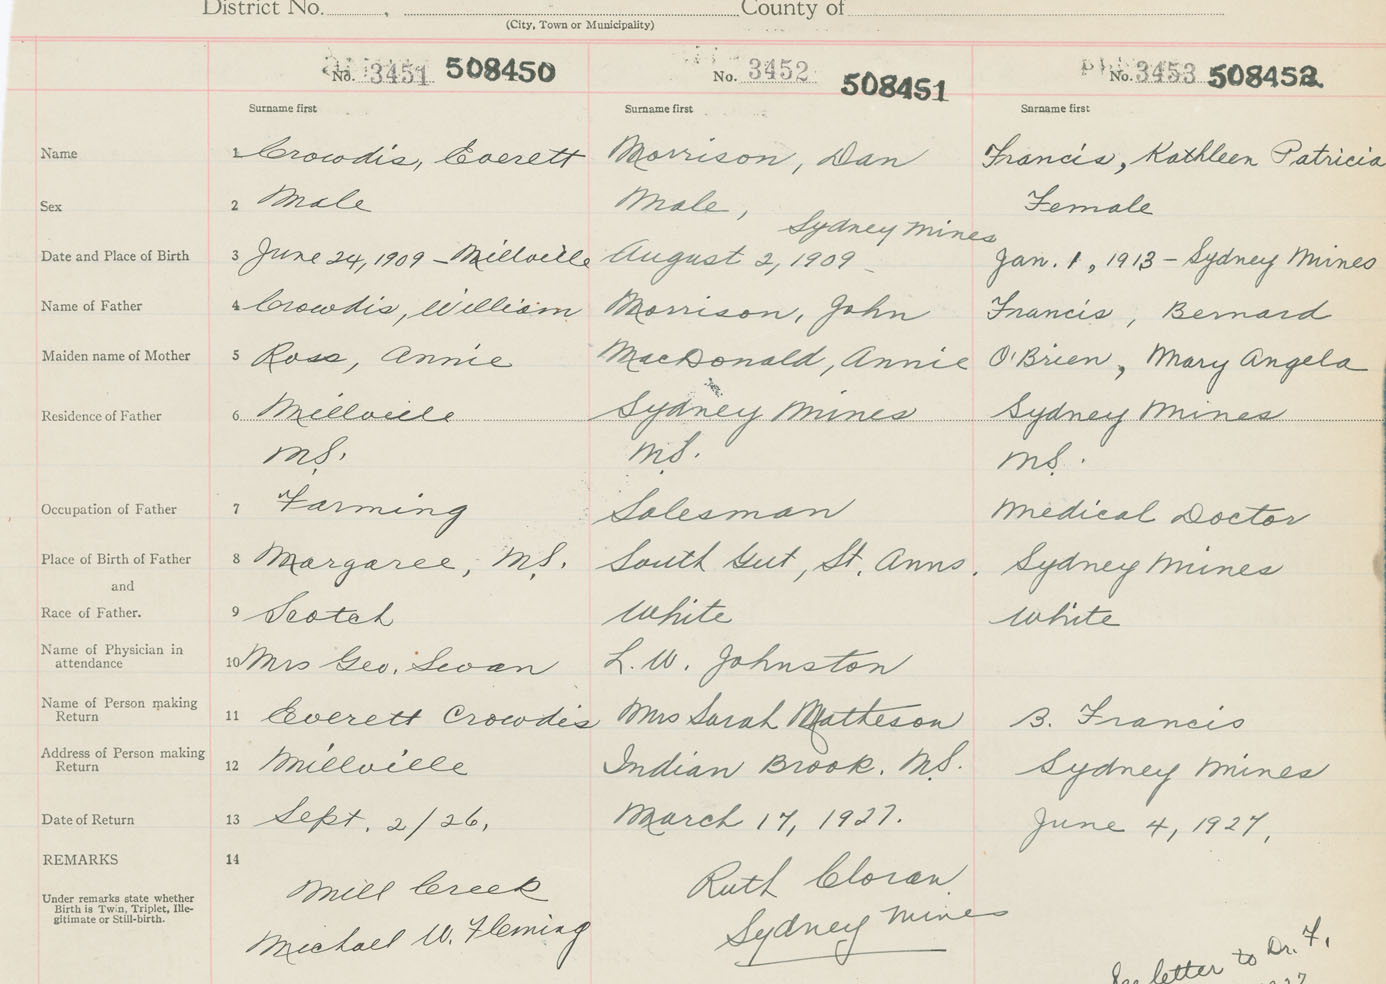 District No. , County of
(City, Town or Municipality)
No. 3451 508450 No. 3452 508451 No. 3453 508452
Surname first Surname first Surname first
Name 1 Crowdis, Everett Morrison, Dan Francis, Kathleen Patricia
Sex 2 Male Male, Female
Sydney Mines
Date and Place of Birth 3 June 24, 1909 - Millville August 2, 1909 - Jan. 1, 1913 - Sydney Mines
Name of Father 4 Crowdis, William Morrison, John Francis, Bernard
Maiden name of Mother 5 Ross, Annie MacDonald, Annie O'Brien, Mary Angela
Residence of Father 6 Millville Sydney Mines Sydney Mines
N.S. N.S. N.S.
Occupation of Father 7 Farming Salesman Medical Doctor
Place of Birth of Father 8 Margaree, N.S. South Gut, St. Anns. Sydney Mines
and
Race of Father. 9 Scotch White White
Name of Physician in
attendance 10 Mrs Geo. Swan L. W. Johnston
Name of Person making
Return 11 Everett Crowdis Mrs Sarah Matheson B. Francis
Address of Person making
Return 12 Millville Indian Brook. N.S. Sydney Mines
Date of Return 13 Sept. 2/26, March 17, 1927. June 4, 1927,
REMARKS 14
Under remarks state whether
Birth is Twin, Triplet, Ille-
gitimate or Still-birth.
Mill Creek Ruth Cloran.
Michael W. Fleming Sydney Mines
letter to Dr. F.